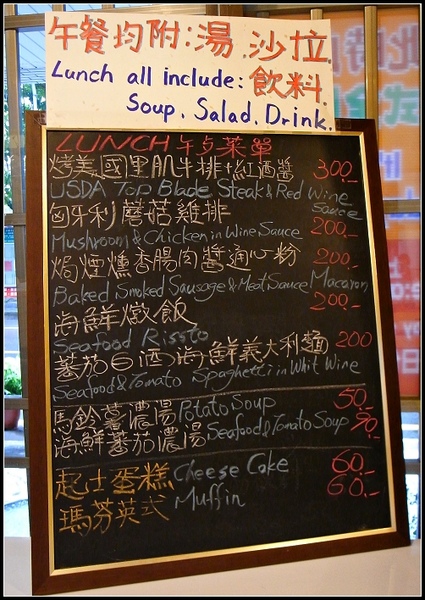 午餐均附:湯.沙拉.
Lunch all include: 飲料.
Soup. Salad. Drink.
LUNCH 午与菜單
烤美國里肌牛排+紅酒醬 300.-
USDA Top Blade Steak & Red Wine Sauce
匈牙利蘑菇雞排 200.-
Mushroom & Chicken in Wine Sauce
焗煙燻香腸肉醬通心粉 200.-
Baked Smoked Sausage & Meat Sauce Macaron
海鮮燉飯 200.-
Seafood Rissto
蕃茄白酒海鮮義大利麵 200
Seafood & Tomato Spaghetti in Whit Wine
馬鈴薯濃湯 Potato Soup 50.-
海鮮蕃茄濃湯 Seafood & Tomato Soup 70.-
起士蛋糕 Cheese Cake 60.-
瑪芬英式 Muffin 60.-